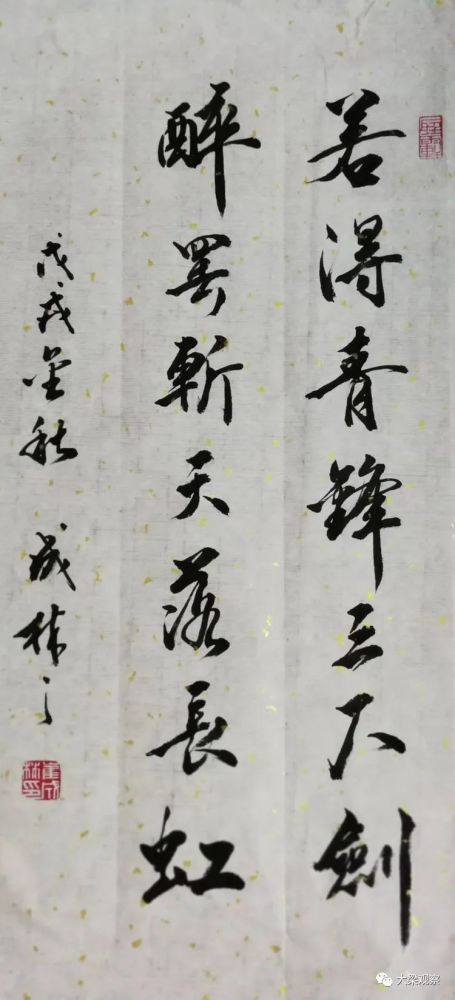 若得青鋒三尺劍
醉罢斬天落長虹
戊戌金秋 成林
大梁观察